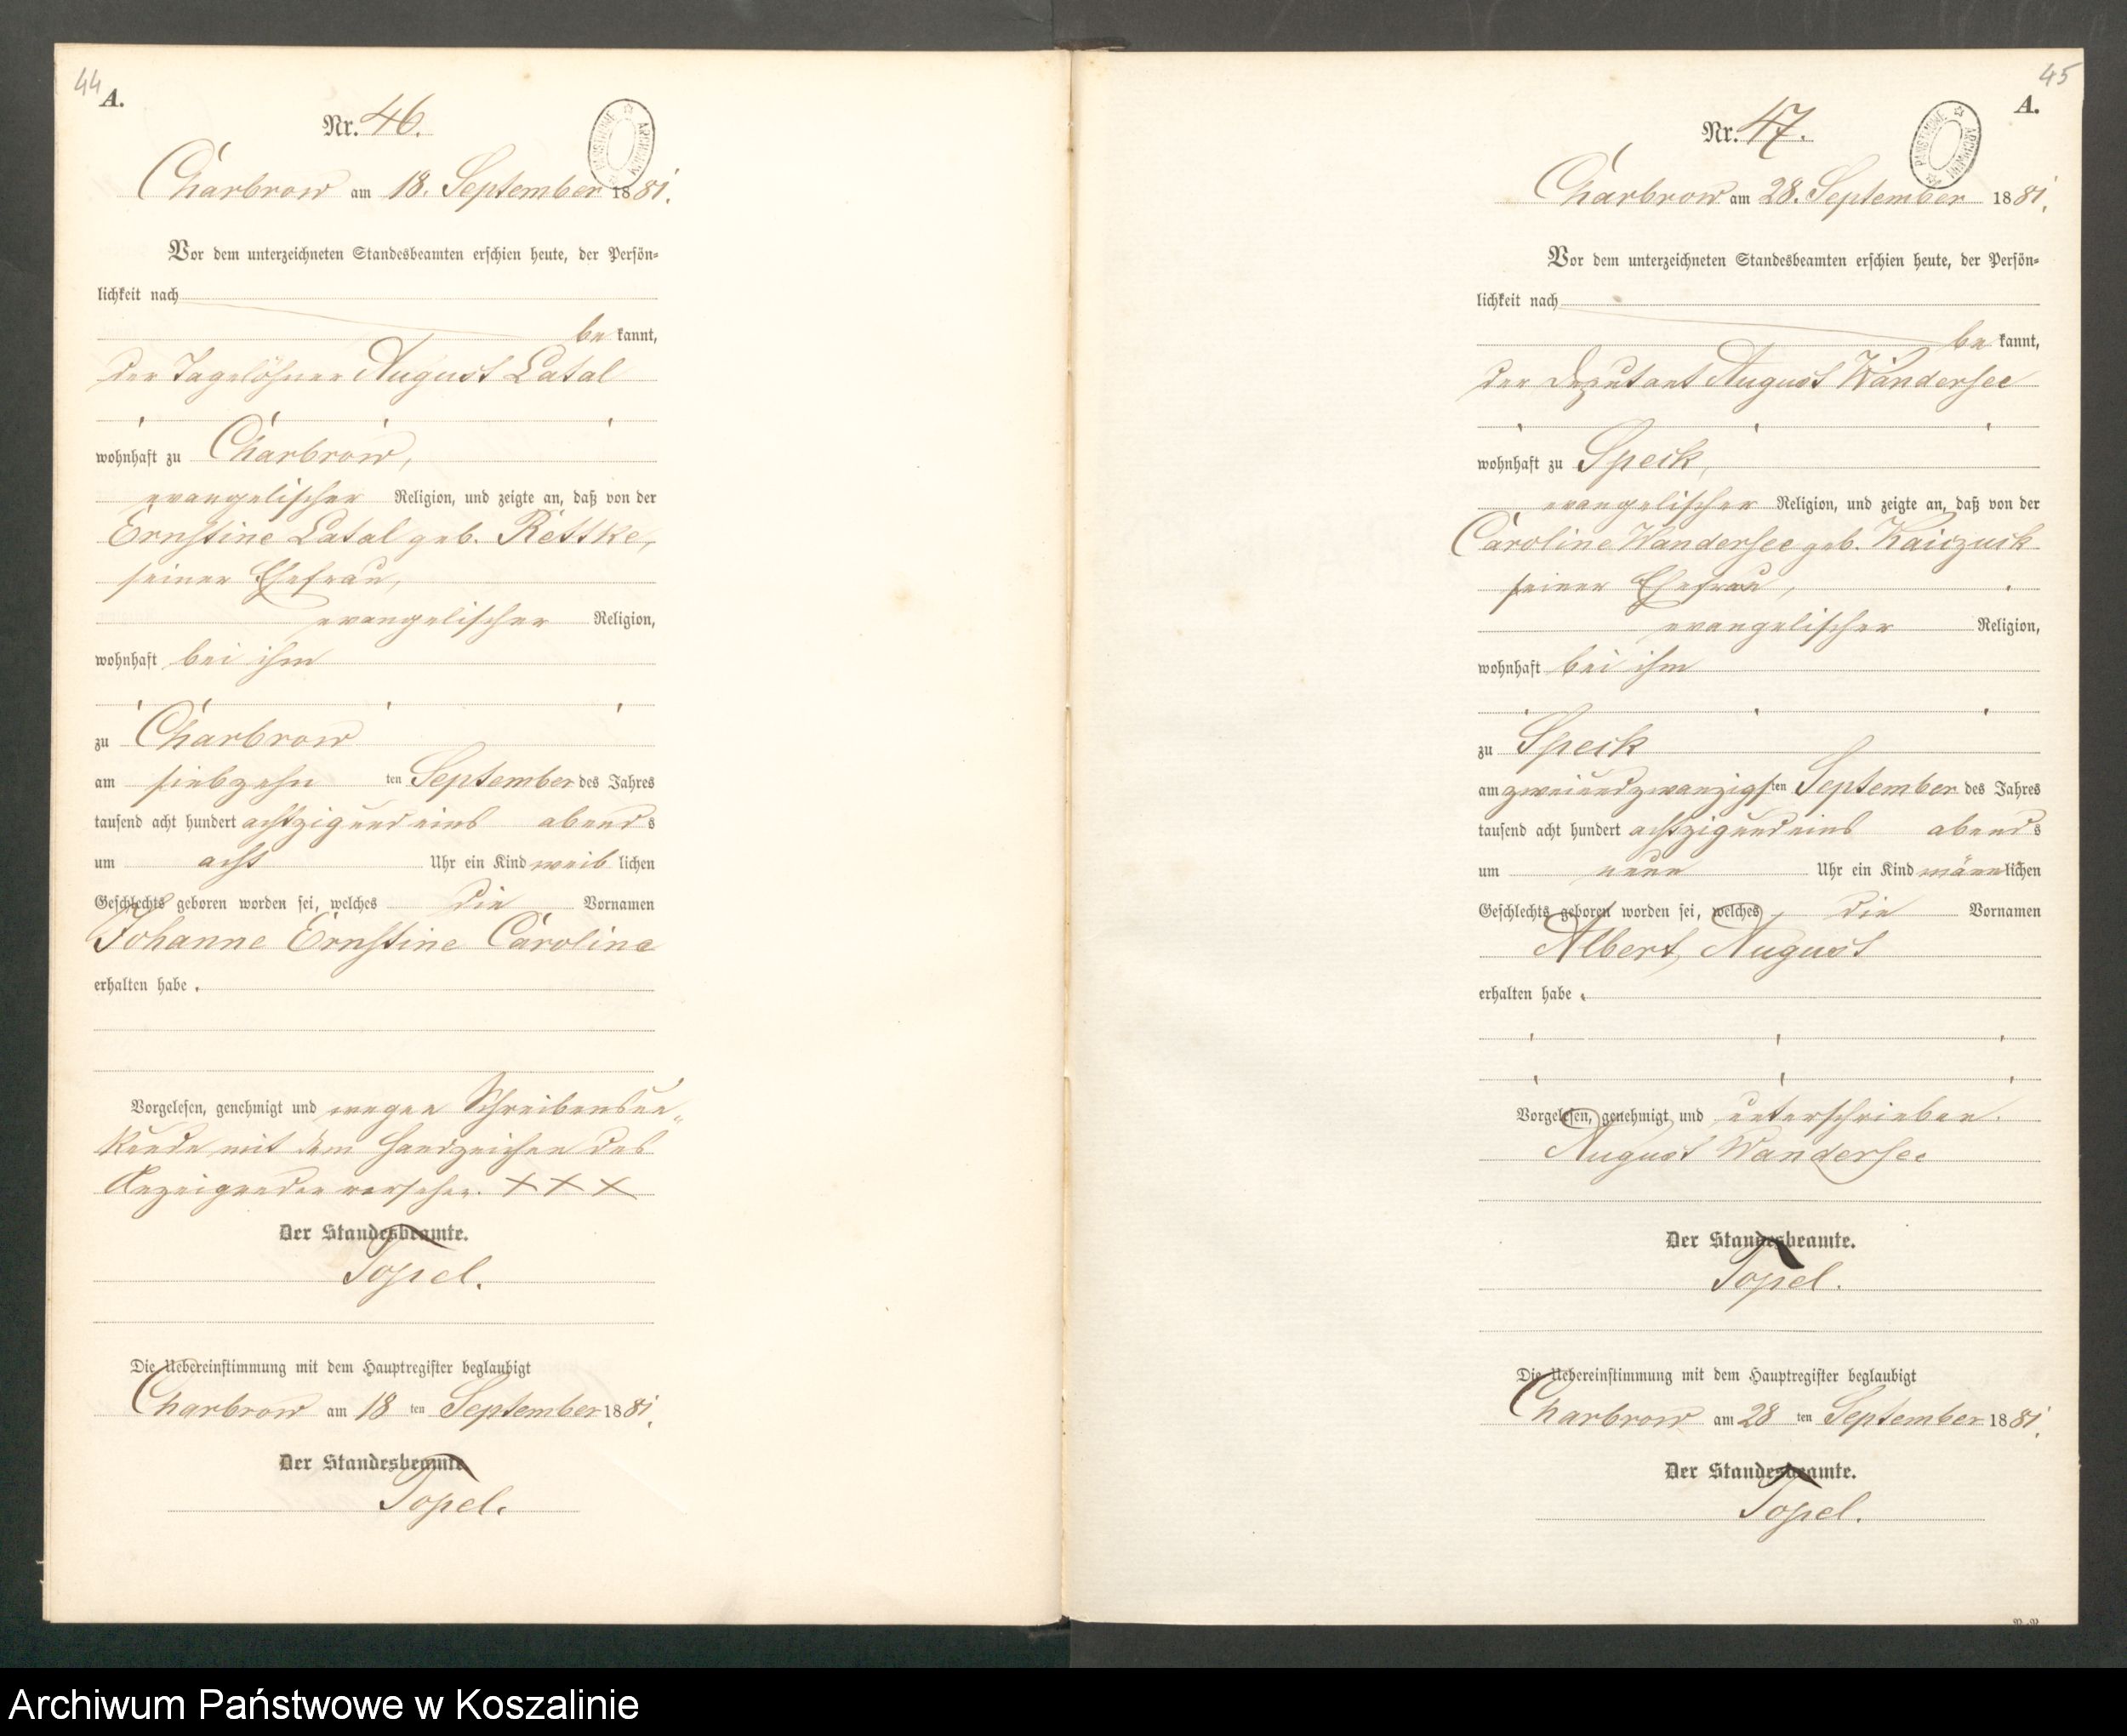 44
A.
Nr. 46.
Charbrow am 18. September 1881.
Vor dem unterzeichneten Standesbeamten erschien heute, der Persön-
lichkeit nach
be kannt,
der Tagelöhner August Latal
wohnhaft zu Charbrow,
evangelischer Religion, und zeigte an, daß von der
Ernstine Latal geb. Rettke,
seiner Ehefrau,
evangelischer Religion,
wohnhaft bei ihm
zu Charbrow
am siebzehn ten September des Jahres
tausend acht hundert achtzig und eins abends
um acht Uhr ein Kind weiblichen
Geschlechts geboren worden sei, welches die Vornamen
Johanne Ernstine Caroline
erhalten habe.
Vorgelesen, genehmigt und wegen Schreibensun-
kunde mit dem Handzeichen des
Anzeigenden versehen. + + +
Der Standesbeamte.
Topel.
Die Uebereinstimmung mit dem Hauptregister beglaubigt
Charbrow am 18 ten September 1881.
Der Standesbeamte
Topel.
45
A.
Nr. 47.
ARCHIWUM PAŃSTWOWE
Charbrow am 28. September 1881.
Vor dem unterzeichneten Standesbeamten erschien heute, der Persön-
lichkeit nach
be kannt,
der Deputant August Wandersee
wohnhaft zu Speck,
evangelischer Religion, und zeigte an, daß von der
Caroline Wandersee geb.
seiner Ehefrau,
evangelischer Religion,
wohnhaft bei ihm
zu Speck
am zweiundzwanzigsten September des Jahres
tausend acht hundert achtzig und eins abends
um neun Uhr ein Kind männlichen
Geschlechts geboren worden sei, welches die Vornamen
Albert, August
erhalten habe.
Vorgelesen, genehmigt und unterschrieben.
August Wandersee
Der Standesbeamte.
Topel.
Die Uebereinstimmung mit dem Hauptregister beglaubigt
Charbrow am 28 ten September 1881.
Der Standesbeamte.
Topel.
Archiwum Państwowe w Koszalinie